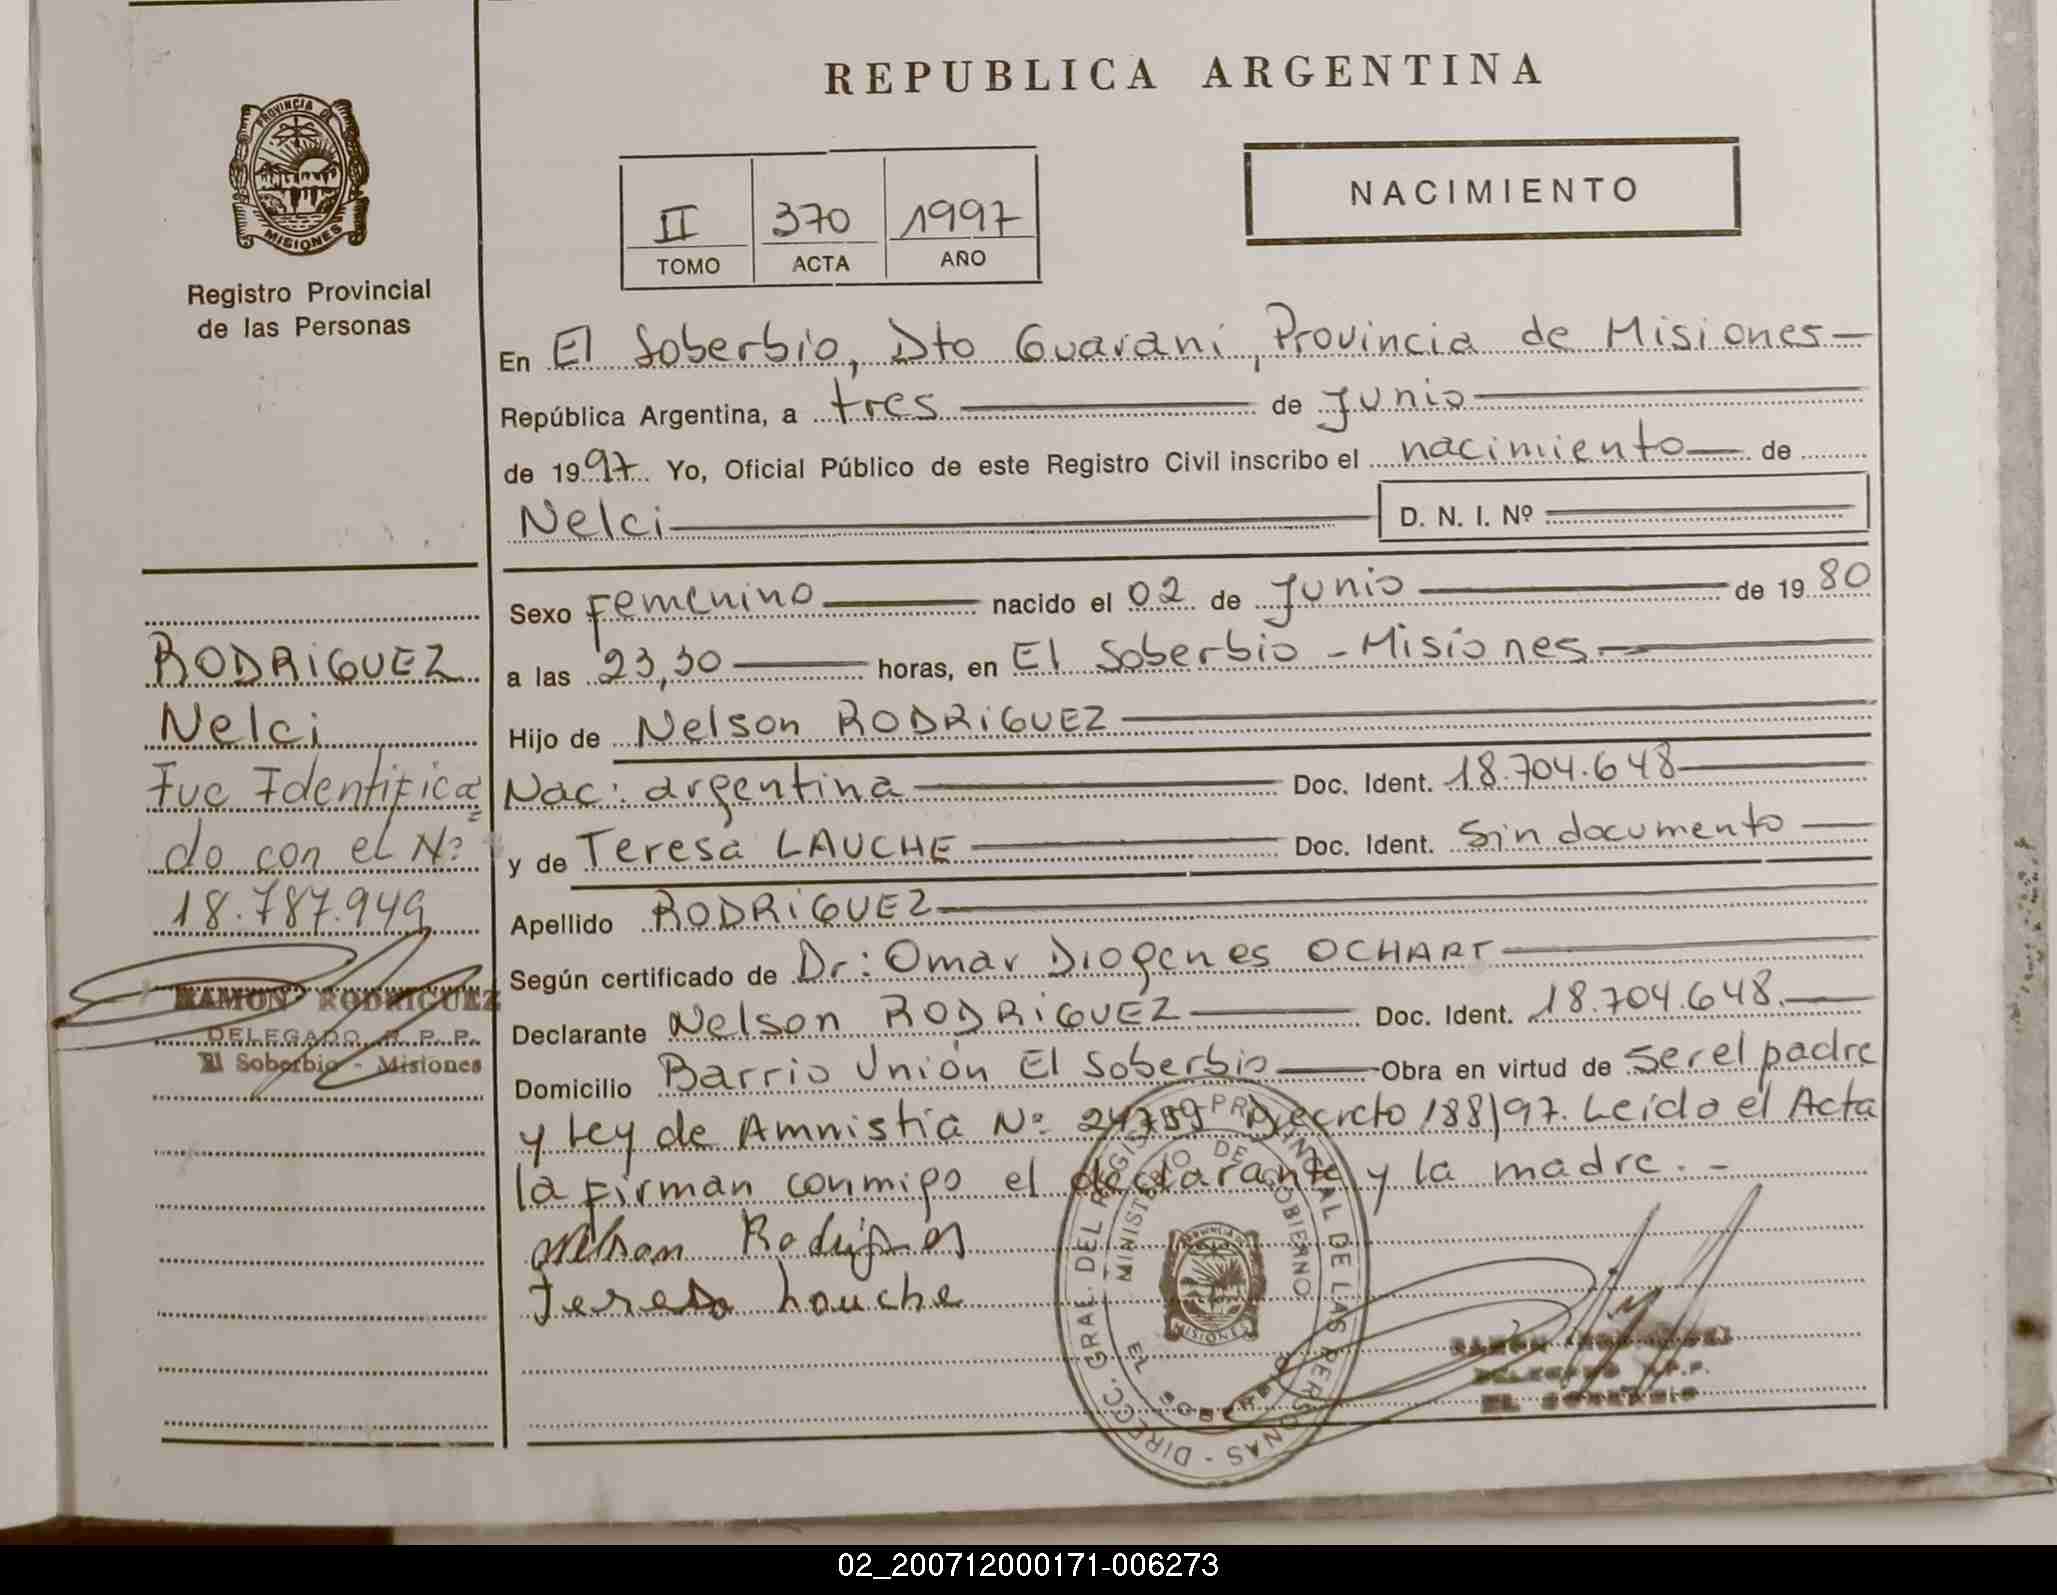 REPUBLICA ARGENTINA
PROVINCIA DE
MISIONES
Registro Provincial
de las Personas
II 370 1997
TOMO ACTA AÑO
NACIMIENTO
En El Soberbio, Dto Guaraní, Provincia de Misiones
República Argentina, a tres de Junio
de 1997 Yo, Oficial Público de este Registro Civil inscribo el nacimiento de
Nelci D. N. I. Nº
Sexo Femenino nacido el 02 de Junio de 1980
a las 23,30 horas, en El Soberbio - Misiones
Hijo de Nelson RODRIGUEZ
Nac: argentina Doc. Ident. 18.704.648
y de Teresa LAUCHE Doc. Ident. Sin documento
Apellido RODRIGUEZ
Según certificado de Dr: Omar Diogenes OCHART
Declarante Nelson RODRIGUEZ Doc. Ident. 18.704.648.
Domicilio Barrio Unión El Soberbio Obra en virtud de ser el padre
y Ley de Amnistía Nº 24755 Decreto 188/97. Leído el Acta
la firman conmigo el declarante y la madre. -
Nelson Rodrigues
Teresa Lauche
RODRIGUEZ
Nelci
Fue Identifica=
do con el Nº
18.787.949
RAMON RODRIGUEZ
DELEGADO R. P. P.
El Soberbio - Misiones
DIRECC. GRAL. DEL REGISTRO PROVINCIAL DE LAS PERSONAS -
MINISTERIO DE GOBIERNO
EL SOBERBIO
MISIONES
RAMON RODRIGUEZ
DELEGADO R.P.P.
EL SOBERBIO
02_200712000171-006273